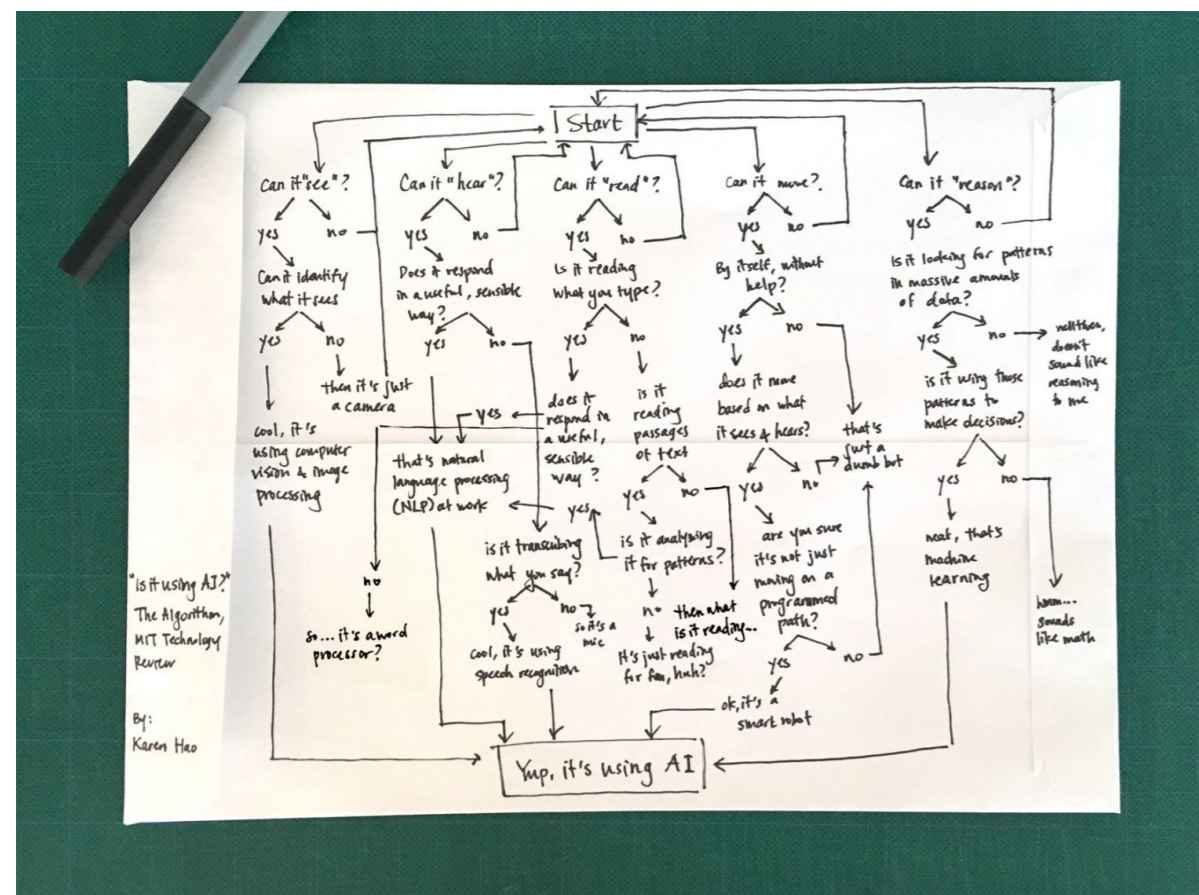 Start
Can it "see"?
yes
no
Can it identify
what it sees
yes
no
then it's just
a camera
cool, it's
using computer
vision & image
processing
Can it "hear"?
yes
no
Does it respond
in a useful, sensible
way?
yes
no
that's natural
language processing
(NLP) at work
is it transcribing
what you say?
yes
no
so it's a
mic
Cool, it's using
speech recognition
Can it "read"?
yes
no
Is it reading
what you type?
yes
no
does it
respond in
a useful,
sensible
way?
yes
no
so... it's a word
processor?
is it
reading
passages
of text
yes
no
is it analyzing
it for patterns?
yes
no
It's just reading
for fun, huh?
then what
is it reading...
Can it move?
yes
no
By itself, without
help?
yes
no
does it move
based on what
it sees & hears?
yes
no
that's
just a
dumb bot
are you sure
it's not just
moving on a
programmed
path?
yes
no
ok, it's a
smart robot
Can it "reason"?
yes
no
Is it looking for patterns
in massive amounts
of data?
yes
no
well then,
doesn't
sound like
reasoning
to me
is it using those
patterns to
make decisions?
yes
no
neat, that's
machine
learning
hmm...
sounds
like math
Yup, it's using AI
"Is it using AI?"
The Algorithm,
MIT Technology
Review
By:
Karen Hao